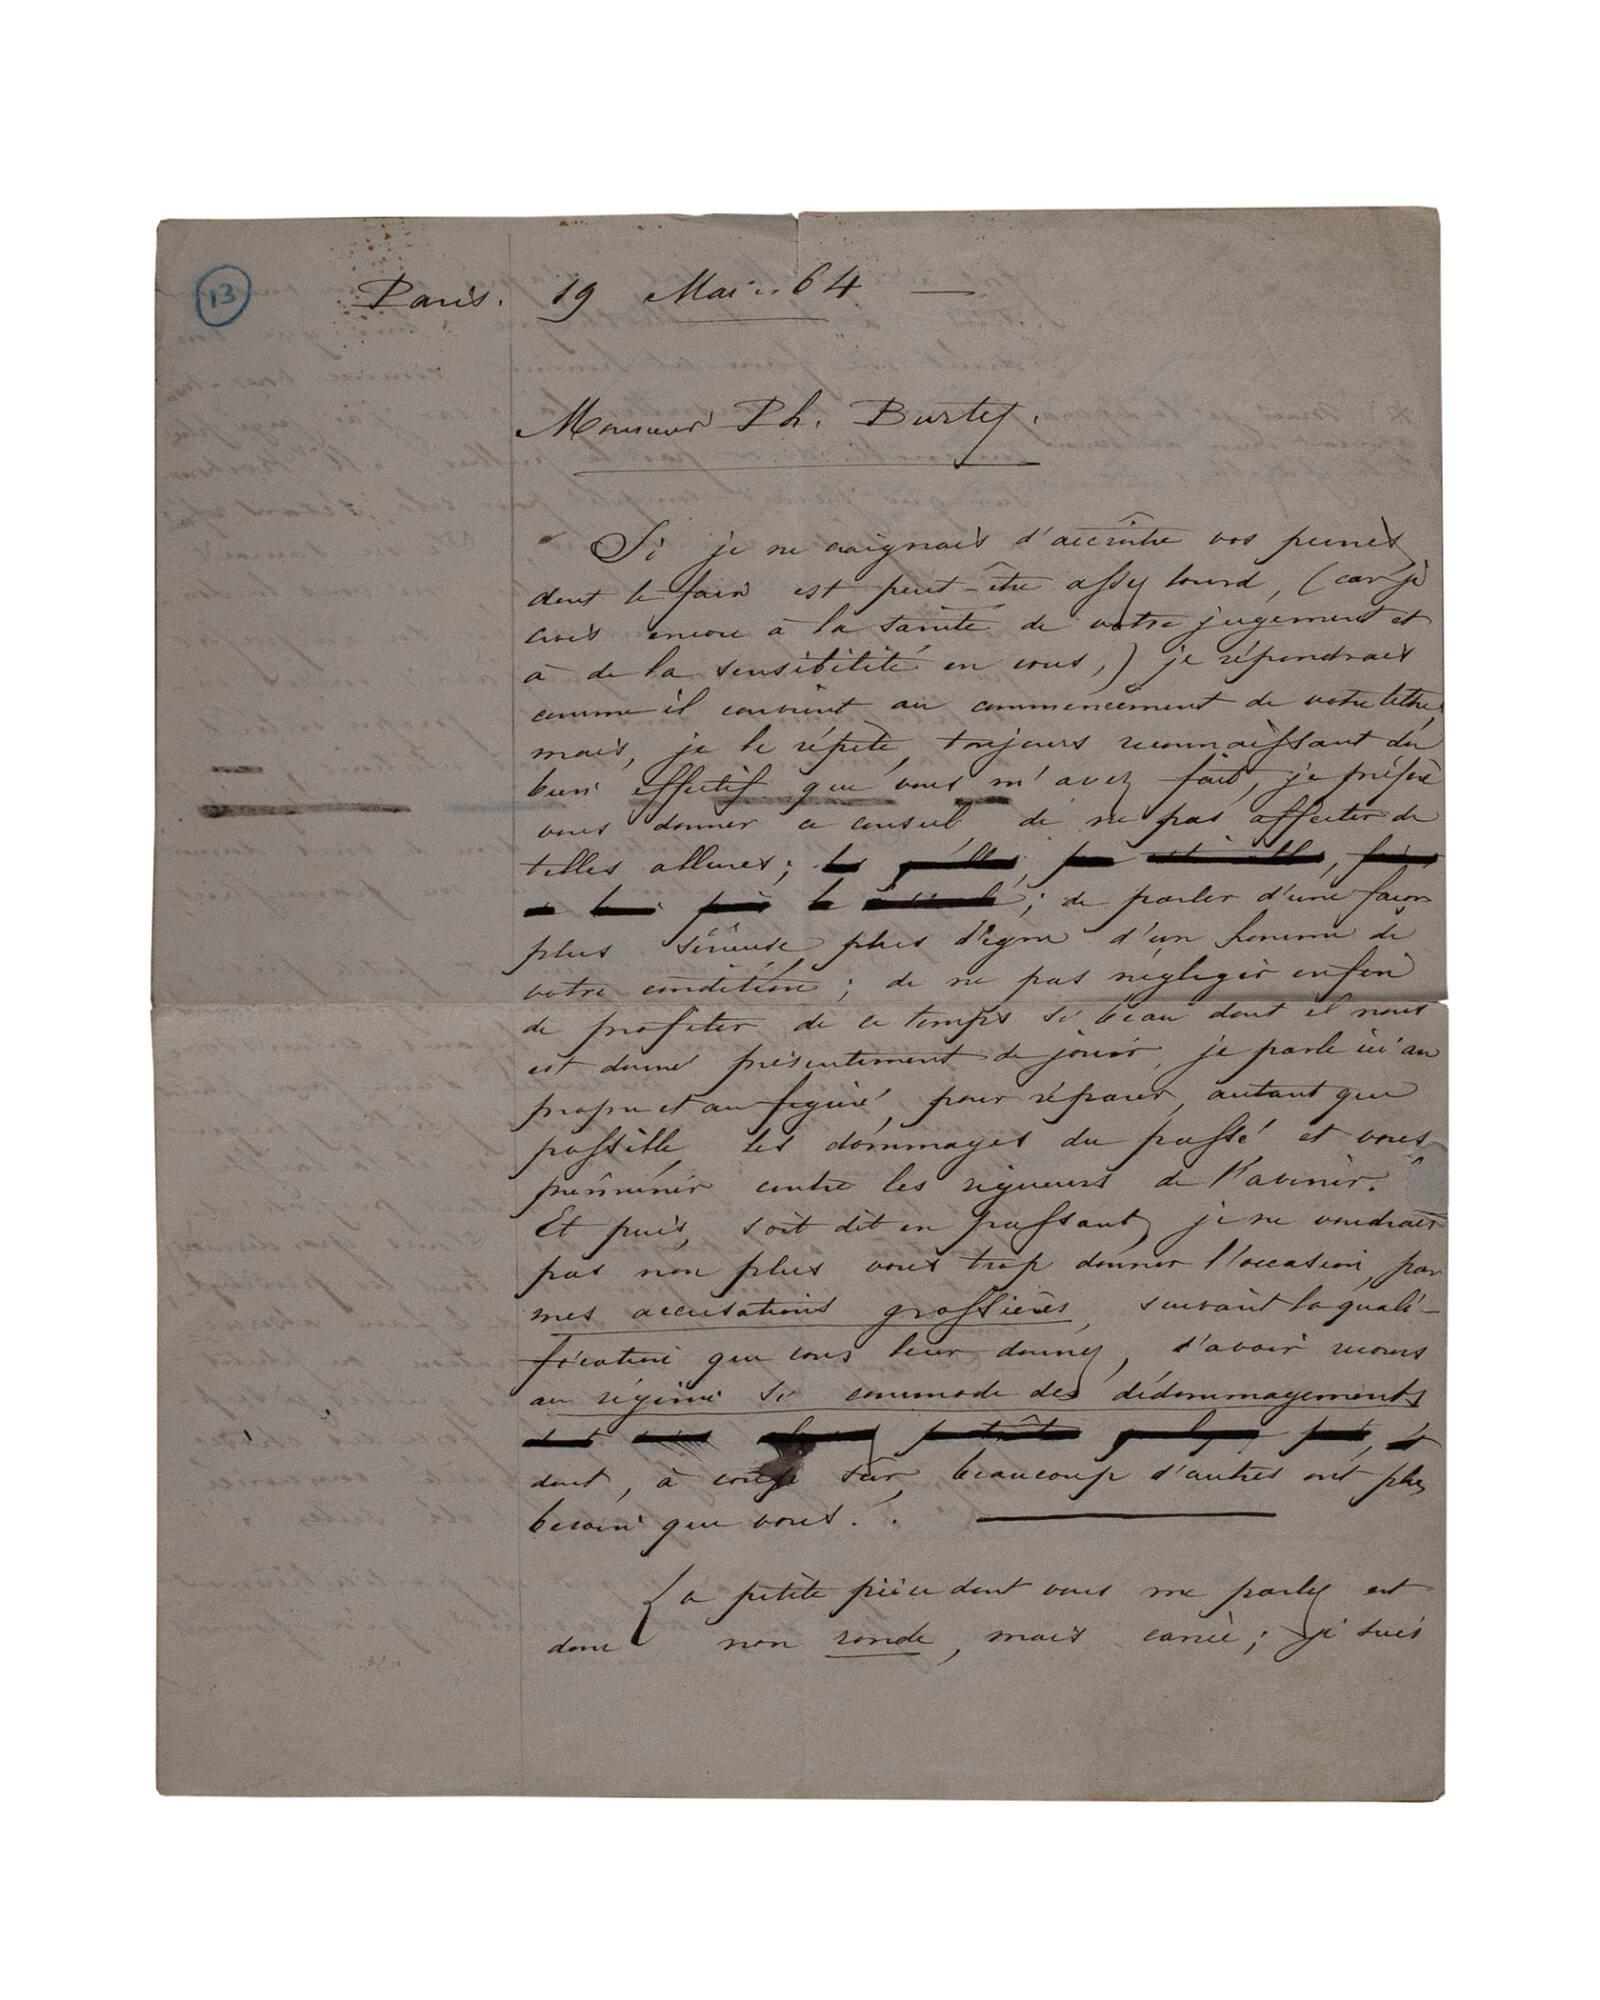 13
Paris. 19 Mai 64 —
Monsieur Ph. Burty.
Si je ne craignais d'accroître vos peines
dont le faix est peut-être assez lourd, (car je
crois encore à la santé de votre jugement et
à de la sensibilité en vous,) je répondrais
comme il convient au commencement de votre lettre,
mais, je le répète, toujours reconnaissant du
bien effectif que vous m'avez fait, je préfère
vous donner ce conseil de ne pas affecter de
telles allures;
; de parler d'une façon
plus sérieuse, plus digne d'un homme de
votre condition; de ne pas négliger enfin
de profiter de ce temps si beau dont il nous
est donné présentement de jouir, je parle ici au
propre et au figuré, pour réparer, autant que
possible les dommages du passé et vous
prémunir contre les rigueurs de l'avenir.
Et puis, soit dit en passant, je ne voudrais
pas non plus vous trop donner l'occasion, par
mes accusations grossières, suivant la quali-
fication que vous leur donnez, d'avoir recours
au régime si commode des dédommagements
dont, à coup sûr, beaucoup d'autres ont plus
besoin que vous!.
La petite pièce dont vous me parlez est
donc non ronde, mais carrée; je suis